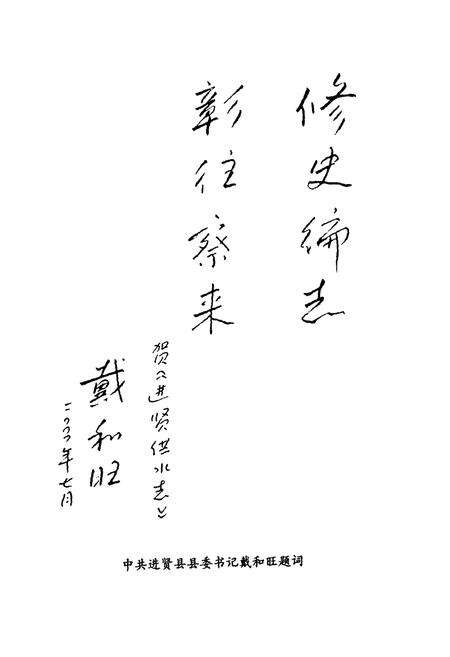 修史编志
彰往察来
贺《进贤供水志》
戴和旺
二〇〇〇年七月
中共进贤县县委书记戴和旺题词